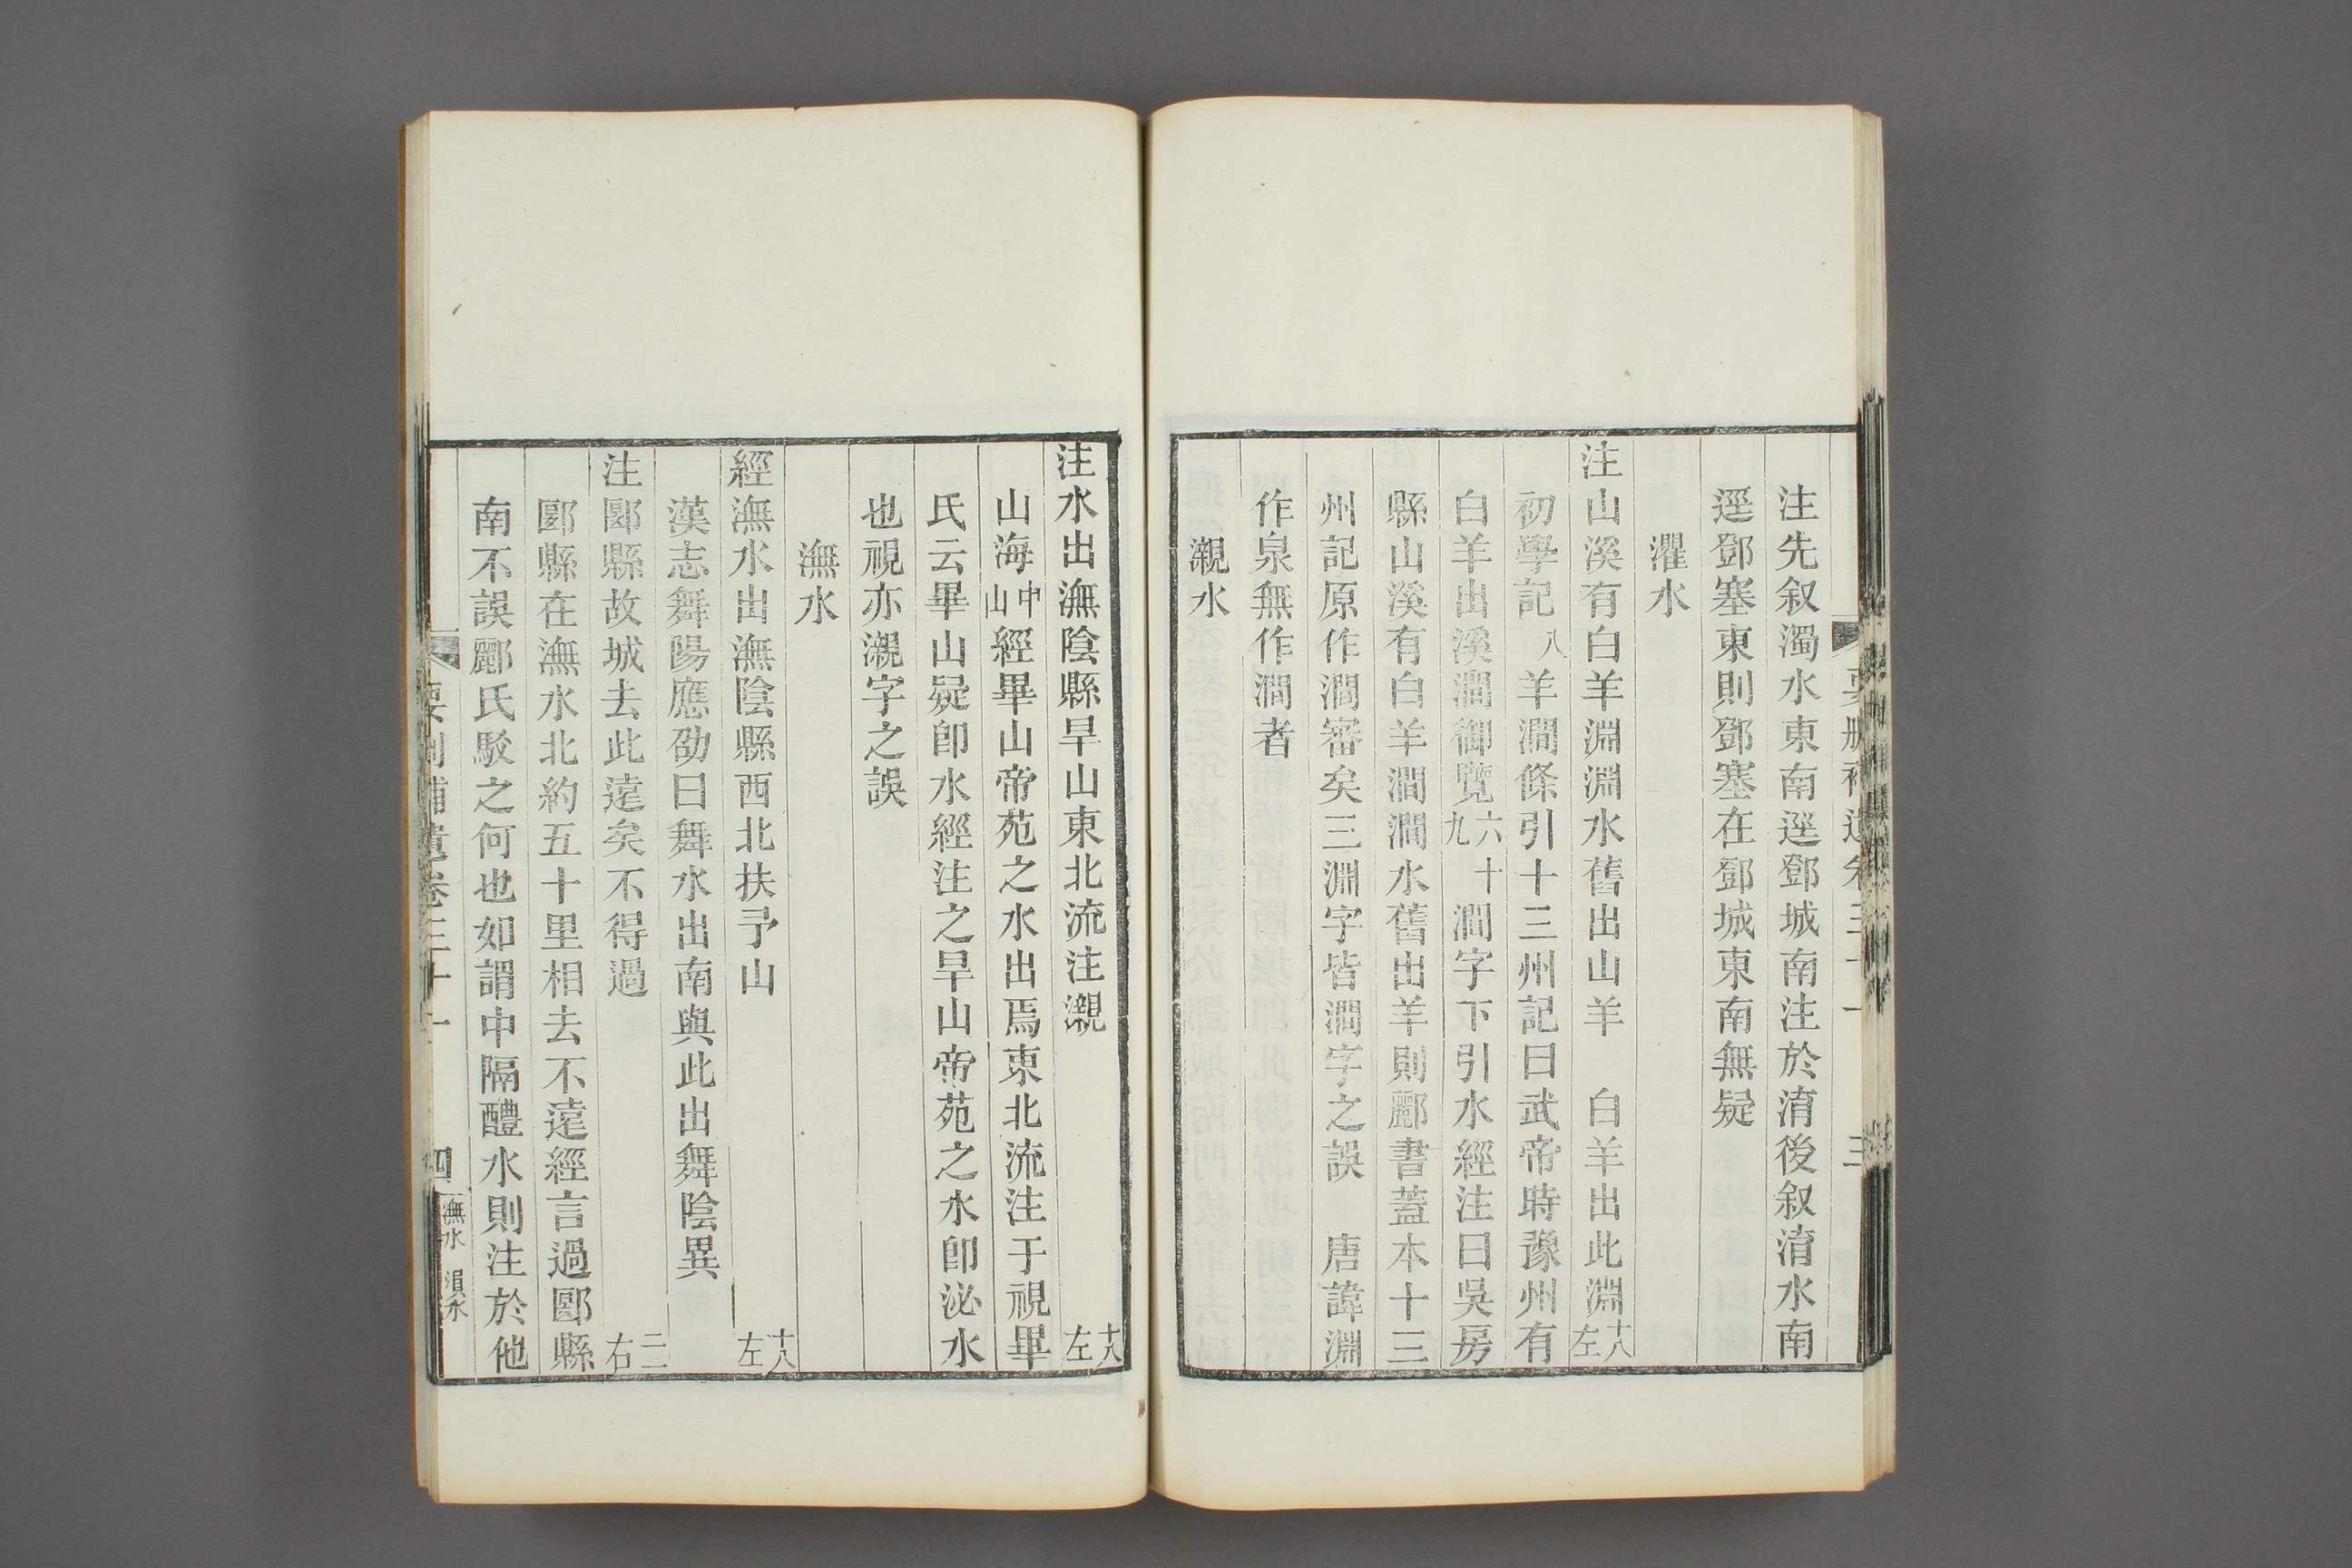 注先叙濁水東南逕鄧城南注於淯後叙淯水南
逕鄧塞東則鄧塞在鄧城東南無疑
灈水
注山溪有白羊淵淵水舊出山羊　白羊出此淵十八左
初學記八羊澗條引十三州記曰武帝時豫州有
白羊出溪澗御覽六十九澗字下引水經注曰吳房
縣山溪有白羊澗澗水舊出羊則酈書蓋本十三
州記原作澗審矣三淵字皆澗字之誤　唐諱淵
作泉無作澗者
瀙水
注水出潕陰縣旱山東北流注瀙十八左
山海中山經畢山帝苑之水出焉東北流注于視畢
氏云畢山疑卽水經注之旱山帝苑之水卽泌水
也視亦瀙字之誤
潕水
經潕水出潕陰縣西北扶予山十八左
漢志舞陽應劭曰舞水出南與此出舞陰異
注郾縣故城去此遠矣不得過二一右
郾縣在潕水北約五十里相去不遠經言過郾縣
南不誤酈氏駁之何也如謂中隔醴水則注於他
要刪補遺卷三十一　四　潕水　溳水